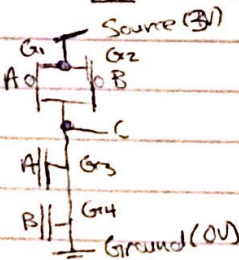 Source (3V)
G1 G2
A B
C
A G3
B G4
Ground (0V)